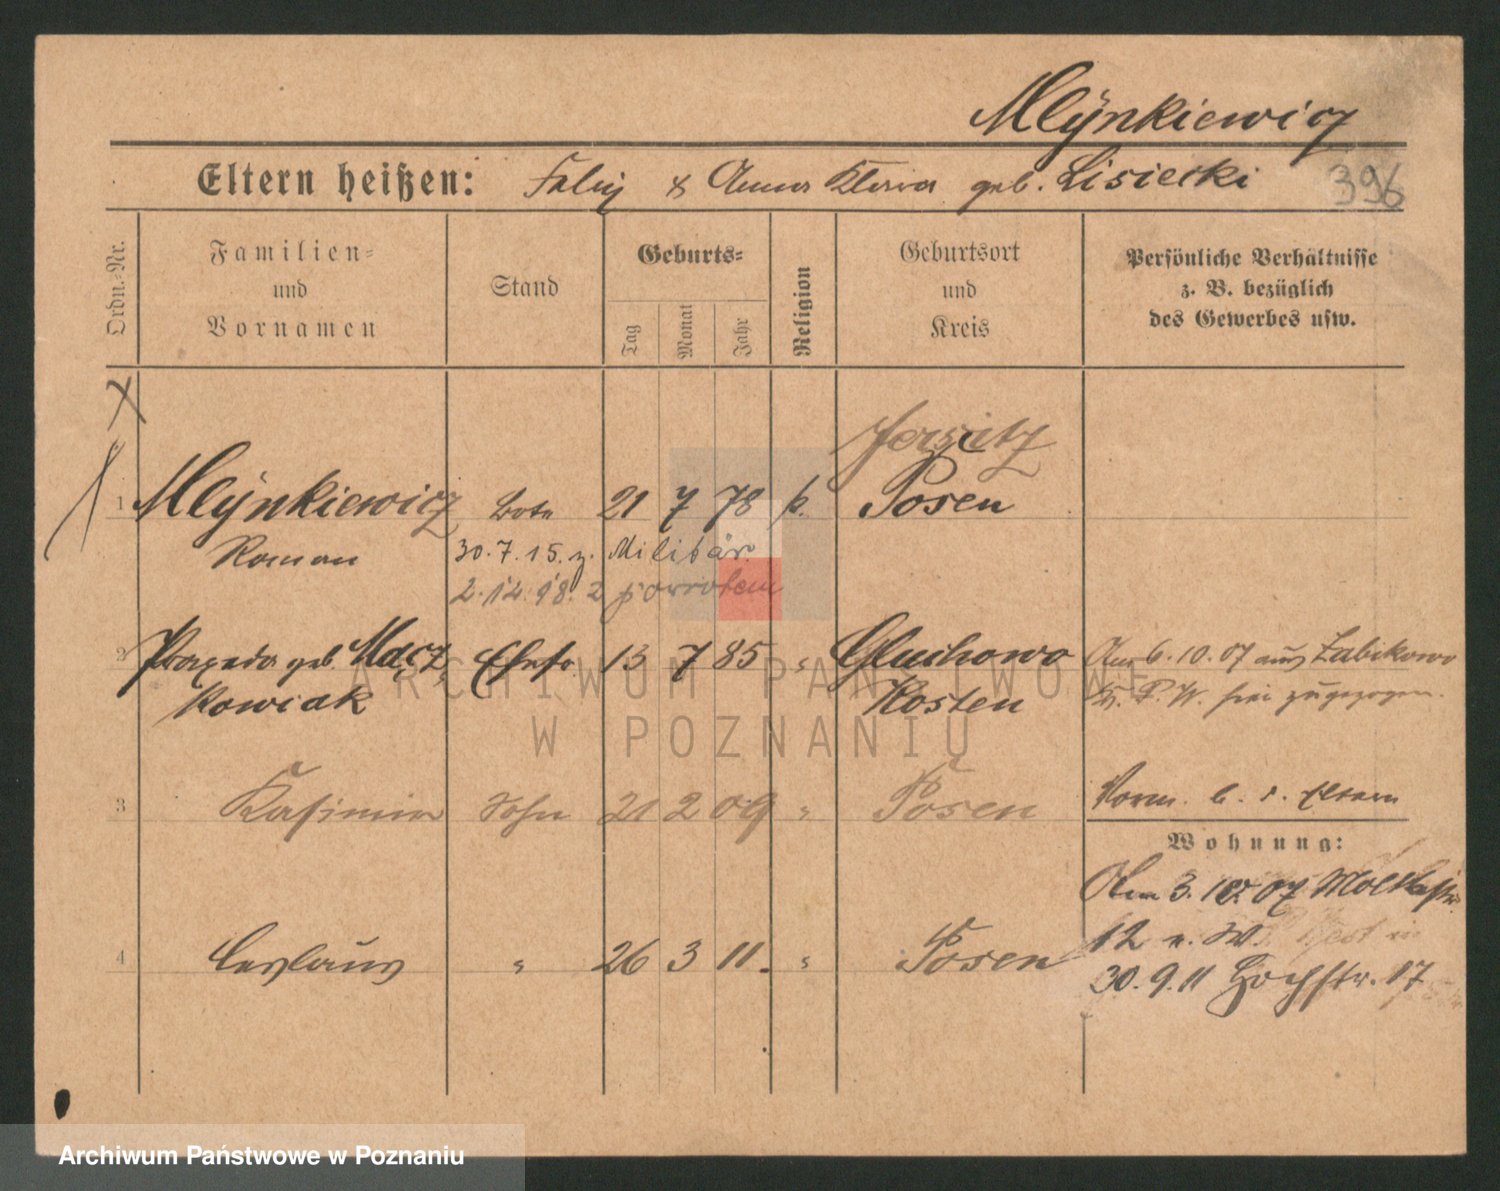 Mlÿnkiewicz
Eltern heißen: Felix & Anna Klara geb. Lisiecki 396
Ordn.-Nr.
Familien-
und
Vornamen
Stand
Geburts-
Tag
Monat
Jahr
Religion
Geburtsort
und
Kreis
Persönliche Verhältnisse
z. B. bezüglich
des Gewerbes usw.
Jersitz
1 Mlÿnkiewicz Bote 21 7 78 k. Posen
Roman 30.7.15. z. Militär
2.12.18. z powrotem
2 Praxeda geb. Macz Ehefr. 13 7 85 " Gluchowo Am 6.10.07 aus Zabikowo
kowiak Kosten Kr. P. W. hier zugezogen.
3 Kasimir Sohn 21 2 09 " Posen Vorm. b. d. Eltern
Wohnung:
Am 3. 10. 07 Moltkestr.
12 n. W.
4 Ceslaus " 26 3 11. " Posen
30.9.11 Hochstr. 17
ARCHIWUM PAŃSTWOWE
W POZNANIU
Archiwum Państwowe w Poznaniu